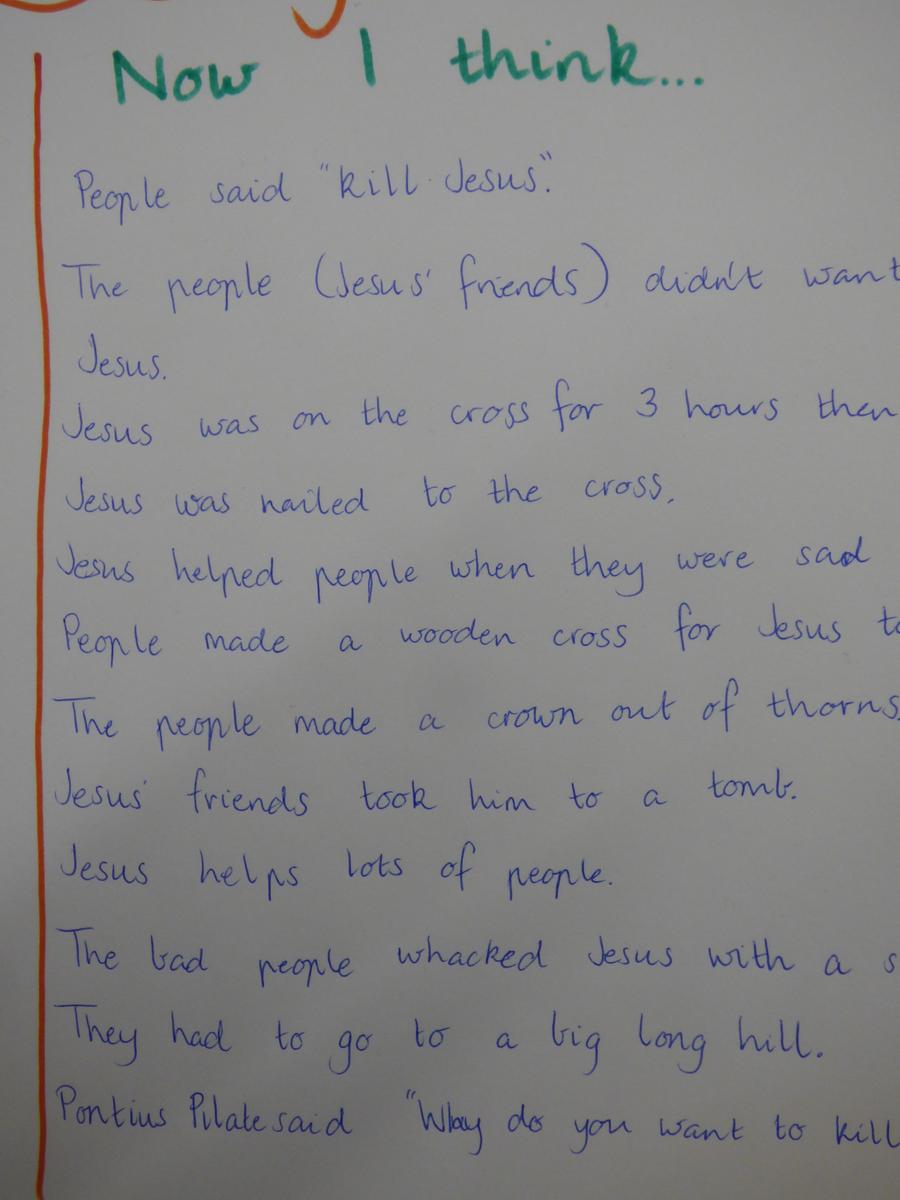 Now I think...
People said "kill Jesus".
The people (Jesus' friends) didn't want
Jesus.
Jesus was on the cross for 3 hours then
Jesus was nailed to the cross.
Jesus helped people when they were sad
People made a wooden cross for Jesus to
The people made a crown out of thorns.
Jesus' friends took him to a tomb.
Jesus helps lots of people.
The bad people whacked Jesus with a s
They had to go to a big long hill.
Pontius Pilate said "Why do you want to kill